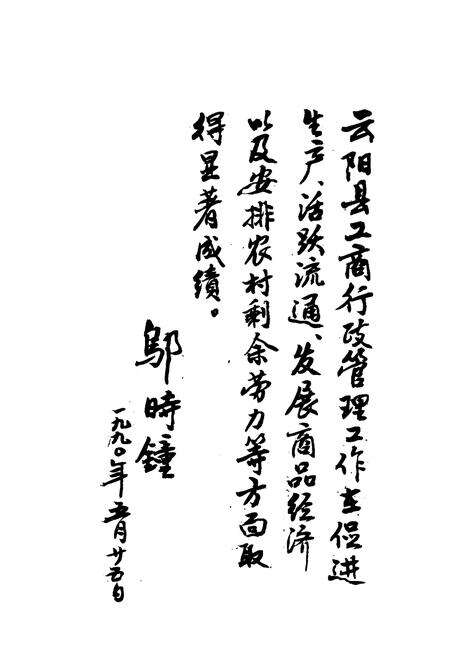 云阳县工商行政管理工作在促进
生产、活跃流通、发展商品经济
以及安排农村剩余劳力等方面取
得显著成绩。
邬時鐘
一九九〇年五月廿五日